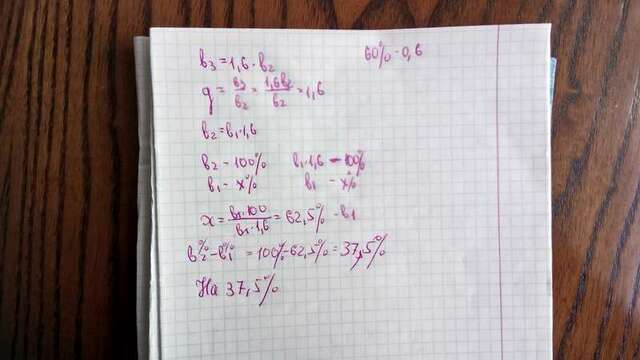 60% - 0,6
b₃ = 1,6 · b₂
q = b₃/b₂ = 1,6b₂/b₂ = 1,6
b₂ = b₁ · 1,6
b₂ - 100% b₁ · 1,6 - 100%
b₁ - x% b₁ - x%
x = b₁ · 100/b₁ · 1,6 = 62,5% - b₁
b₂% - b₁% = 100% - 62,5% = 37,5%
На 37,5%